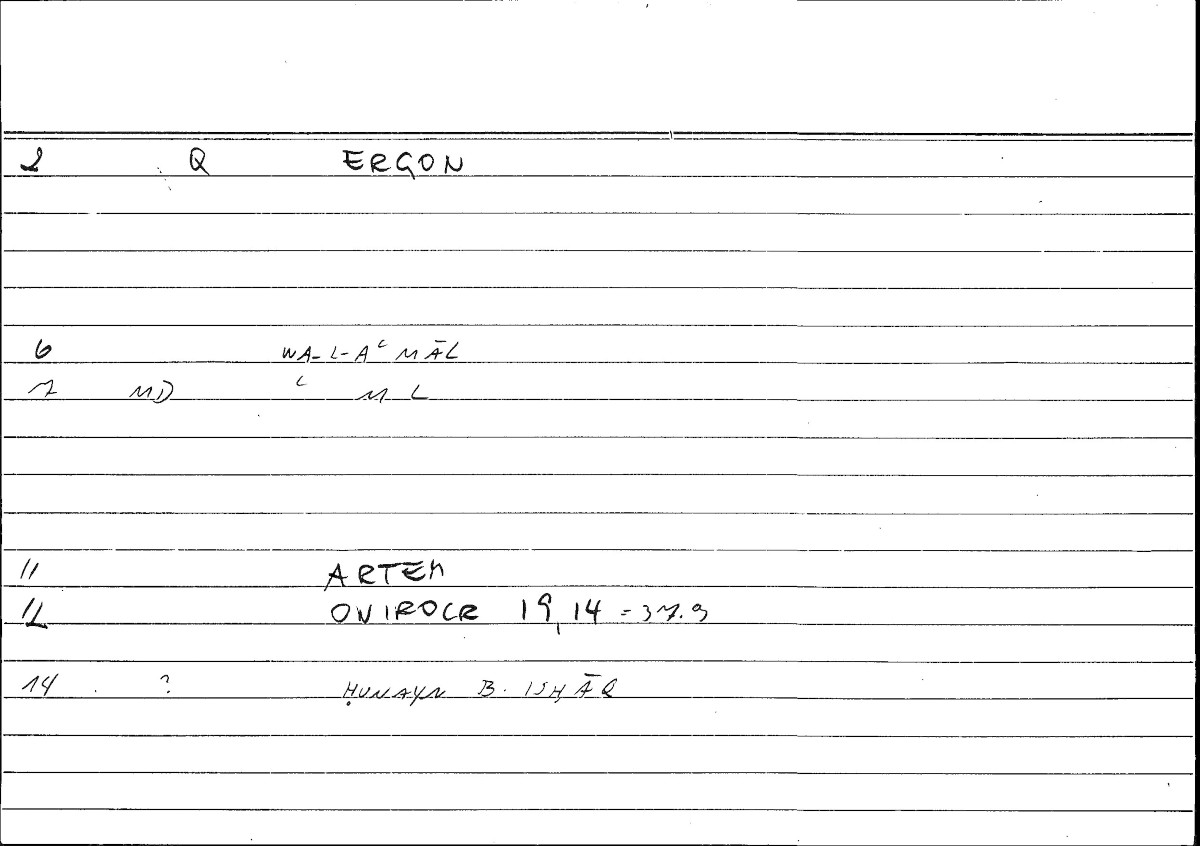 2 Q ERGON
6 WA-L-AʿMĀL
7 MD ʿ M L
11 ARTEM
12 ONIROCR 19,14 = 37.9
14 ? ḤUNAYN B. ISḤĀQ